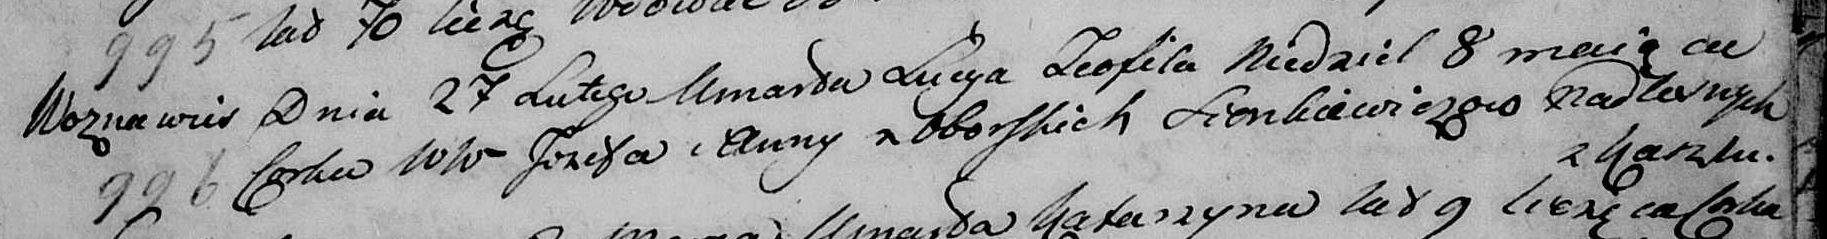 995 lad 70 liczę
Woznawies Dnia 27 Lutego Umarda Lucya Teofila Niedziel 8 maiąca
996 Corka WW Jozefa i Anny z Oborskich Sienkiewiczow Nadlesnych
z Kaszlu.
Umarda Katarzyna lad 9 licząca Corka